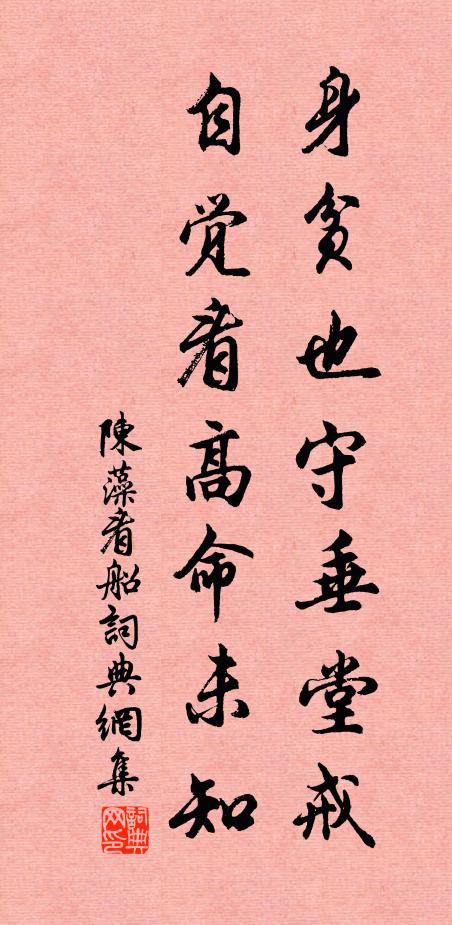 身贫也守垂堂戒
自觉看高命未知
陳藻看船詞典網集
詞典网印